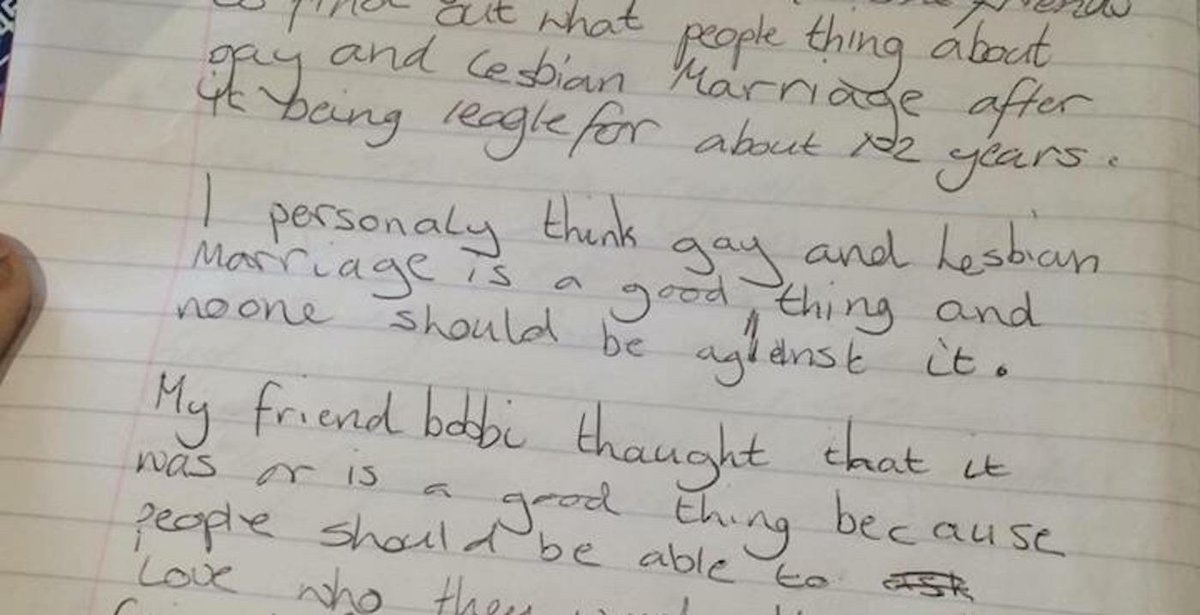 out what people thing about
gay and Lesbian Marriage after
it being leagle for about 2 years.
I personaly think gay and Lesbian
Marriage is a good thing and
noone should be against it.
My friend bobbi thaught that it
was or is a good thing because
people should be able to
Love who they